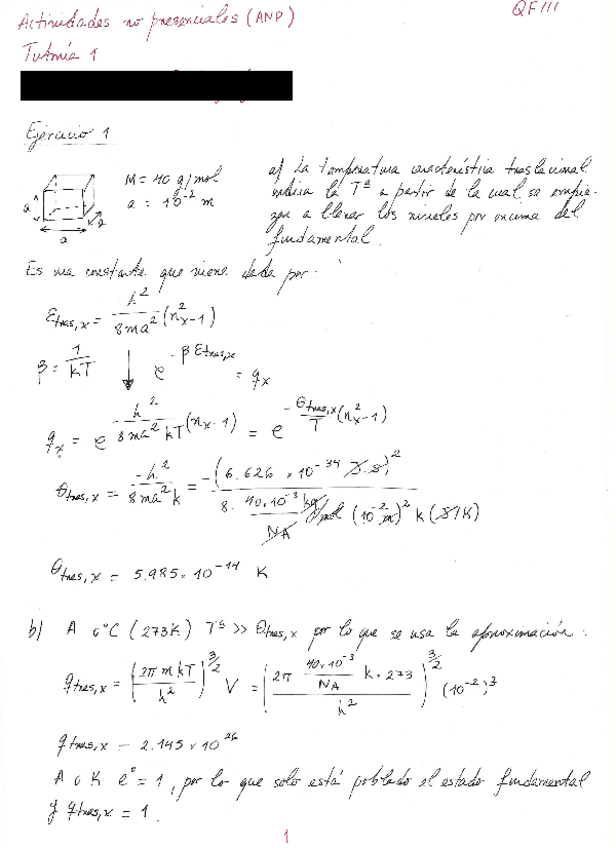 Actividades no presenciales (ANP)
QF III
Tutoría 1
Ejercicio 1
a
a
a
M = 40 g/mol
a : 10⁻² m
a) La temperatura característica traslacional
indica la Tª a partir de la cual se empie-
zan a llenar los niveles por encima del
fundamental.
Es una constante que viene dada por:
Ɛtras,x = h²/8ma² (n²x-1)
β = 1/kT ↓ e^(-β Ɛtras,x) = qx
qx = e^(-h²/8ma²kT (nx-1)) = e^(-θtras,x/T (n²x-1))
θtras,x = -h²/8ma²k = -(6.626 × 10⁻³⁴ J.s)²/8. 40×10⁻³ kg/NA /mol (10⁻² m)² k (J/K)
θtras,x = 5.985 × 10⁻¹⁴ K
b) A 0°C (273K) Tª >> θtras,x por lo que se usa la aproximación:
qtras,x = (2π m kT/h²)^(3/2) V = (2π 40×10⁻³/NA k × 273/h²)^(3/2) (10⁻²)³
qtras,x = 2.145 × 10²⁶
A 0 K e⁰ = 1, por lo que solo está poblado el estado fundamental
y qtras,x = 1.
1